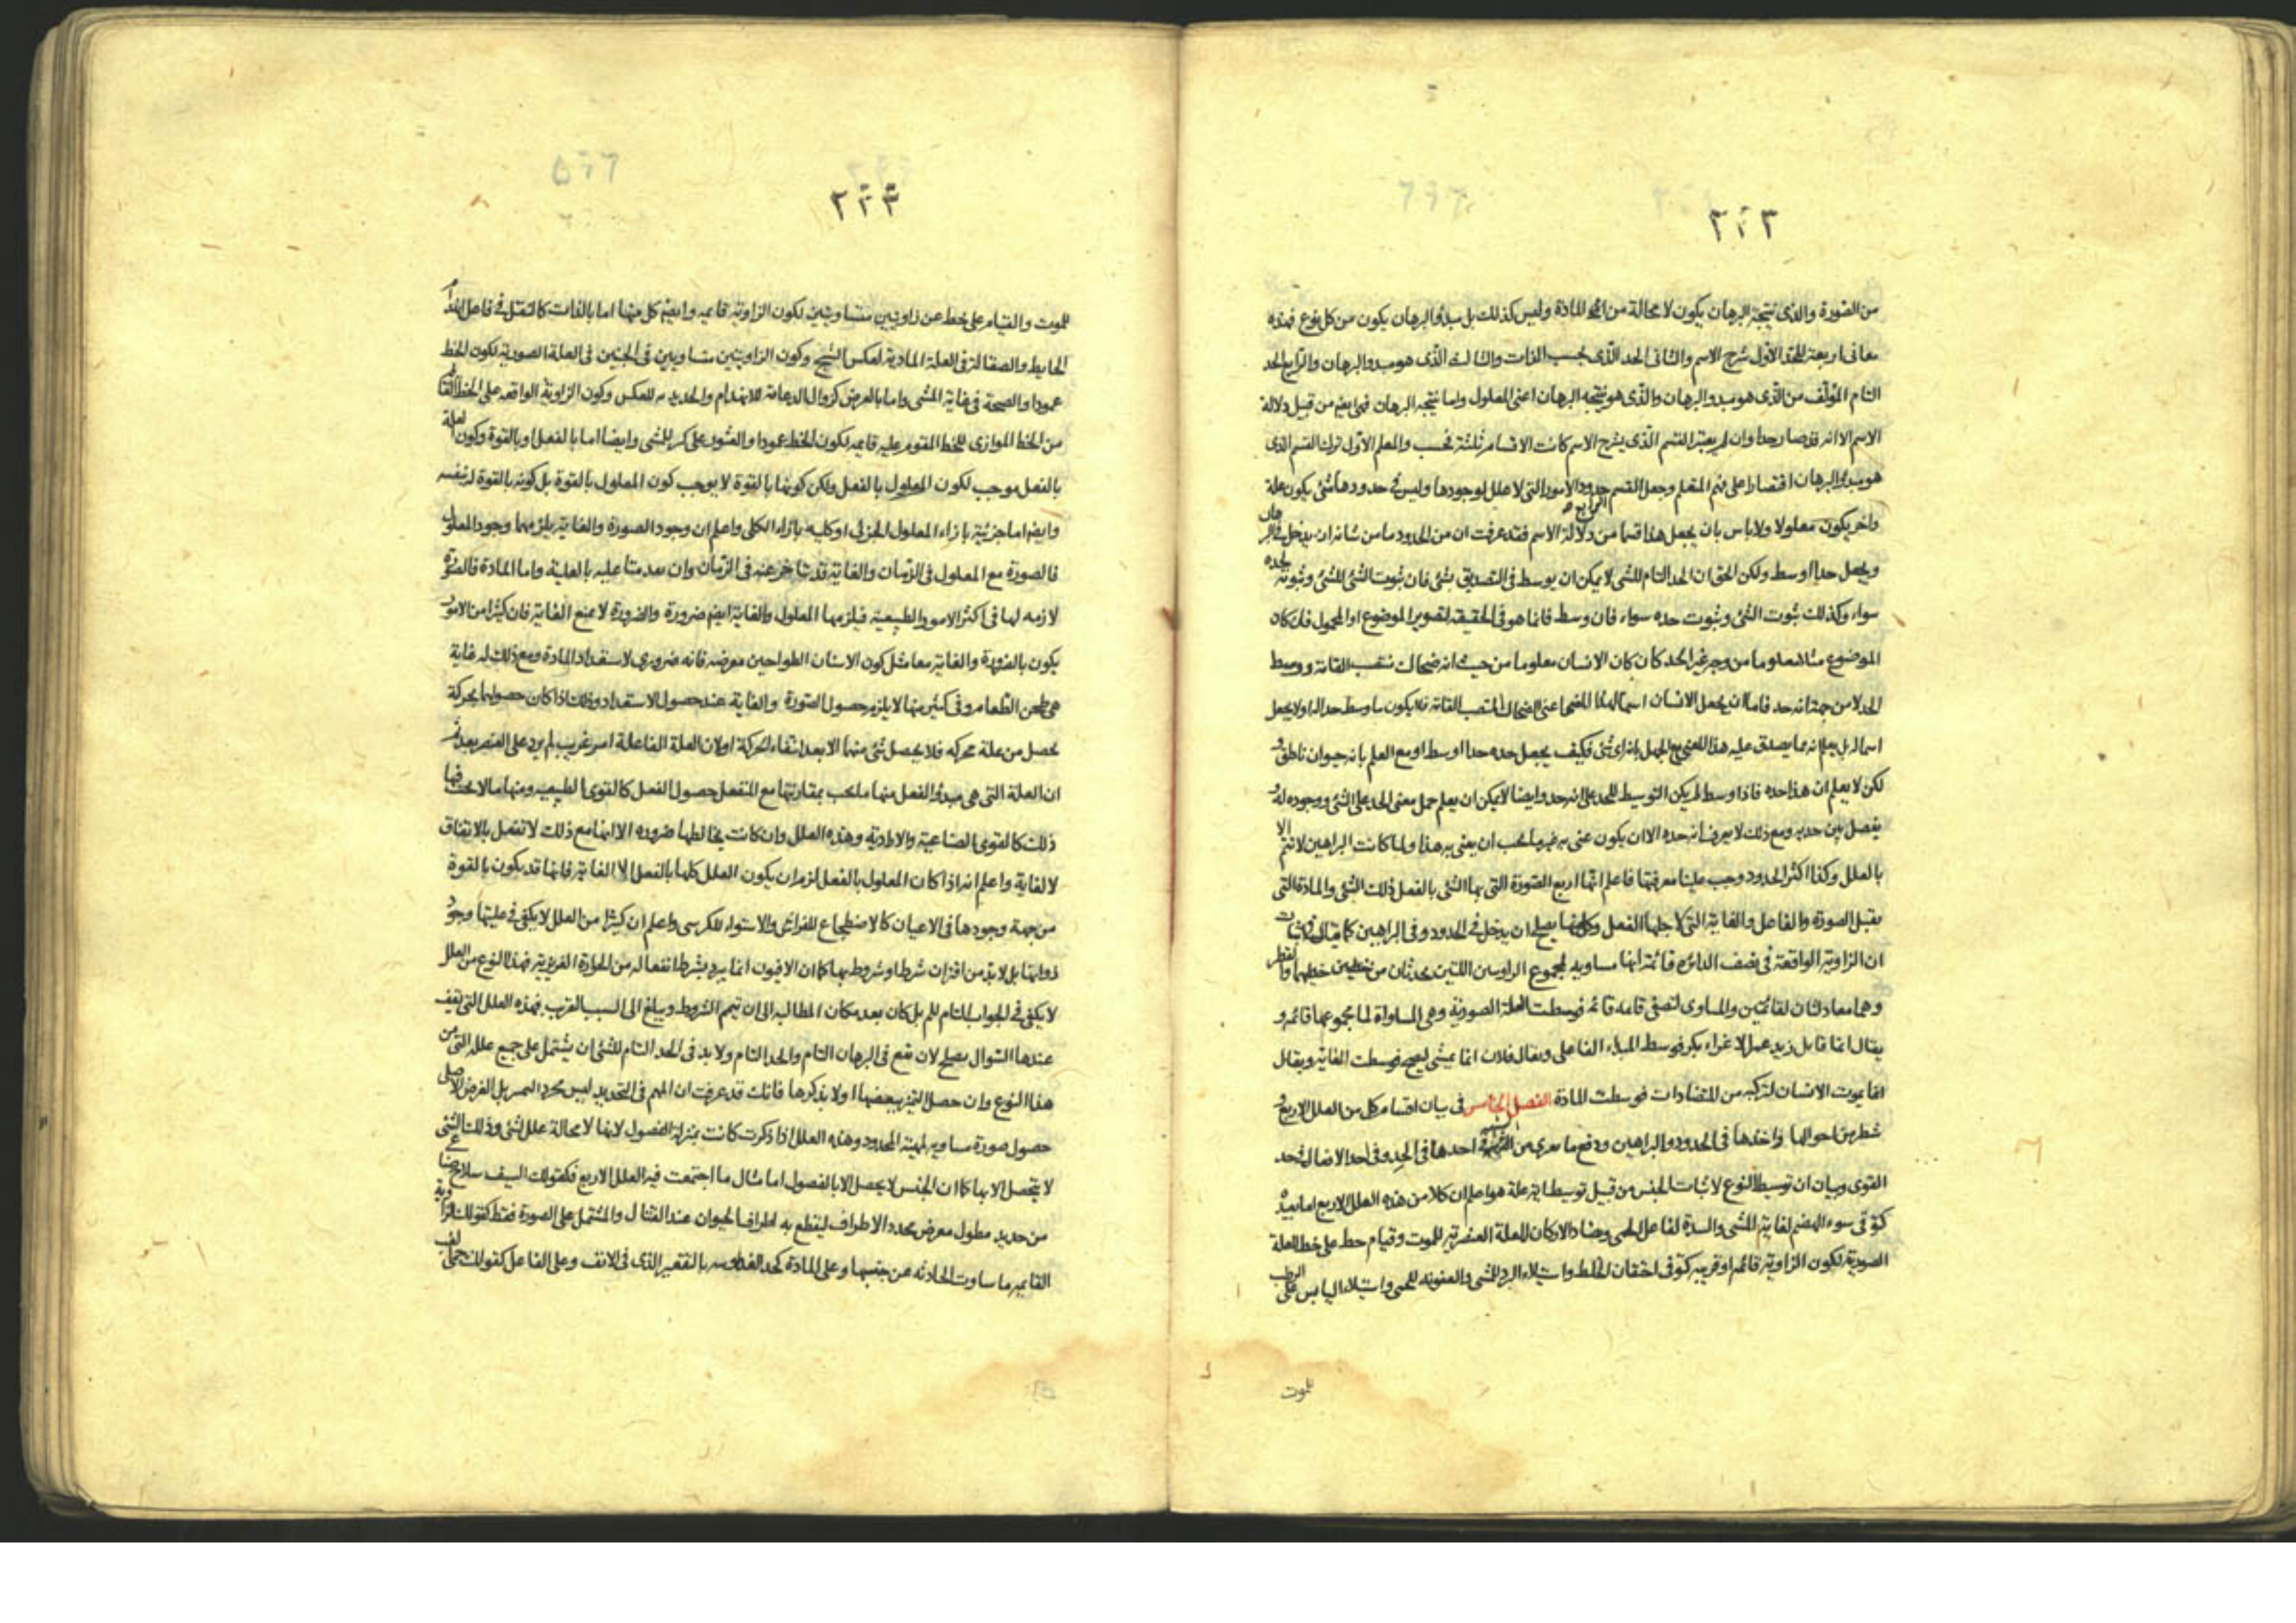 ٢٠٣
من الصورة والذى نتيجة البرهان يكون لا محالة من المادة وليس كذلك بل مبدؤ البرهان يكون من كل نوع فهذه
معانى اربعة للحد الاول شرح الاسم والثانى الحد الذى بحسب الذات والثالث الذى هو مبدو البرهان والرابع الحد
التام المؤلف من الذى هو مبدو البرهان والذى هو نتيجه البرهان اعنى المعلول واما نتيجه البرهان فهى ايضم من قبيل دلالة
الاسم الا انه وان لم يعتبر القسم الذى يشرح الاسم كانت الاقسام ثلثة فحسب والمعلم الاول ترك القسم الذى
هو مبدؤ البرهان اقتصارا على فهم المتعلم وجعل القسم الرابع حدود الامور التى لا علل لوجودها وليس فى حدودها شئ يكون علة
واخر يكون معلولا ولا باس بان يجعل هذا قسما من دلالة الاسم فقد عرفت ان من الحدود ما من شانه ان يدخل فى البرهان
ويجعل حدا اوسط ولكن الحق ان الحد التام للشى لا يمكن ان يوسط فى التصديق بشئ فان ثبوت الشئ للشئ وثبوته لحده
سواء وكذلك ثبوت الشئ وثبوت حده سواء فان وسط فانما هو فى الحقيقه لتصوير الموضوع او المحمول فان كان
الموضوع مثلا معلوما من وجه غير الحد كان كان الانسان معلوما من حيث انه ضحاك منتصب القامة ووسط
الحد لا من جهة انه حد فاما ان يجعل الانسان اسما لهذا المعنى اعنى الضحاك المنتصب القامة فلا يكون ما وسط حدا له او لا يجعل
اسما له بل يعلم انه مما يصدق عليه هذا المعنى مع الجهل بانه اى شئ فكيف يجعل حده حدا اوسط او مع العلم بانه حيوان ناطق و
لكن لا يعلم ان هذا حده فاذا وسط لم يكن التوسيط للحد على انه حد وايضا لا يمكن ان يعلم حمل معنى الحد على الشئ ووجوده له و
يفصل بين حديه ومع ذلك لا يعرف انه حده الا ان يكون عنى به غير ما يجب ان يعنى به هذا ولما كانت البراهين لا تتم الا
بالعلل وكذا اكثر الحدود وجب علينا معرفتها فاعلم انها اربع الصورة التى بها الشئ بالفعل ذلك الشئ والمادة التى
يقبل الصورة والفاعل والغاية التى لاجلها الفعل وكلها يصلح ان يدخل فى الحدود وفى البراهين كما يقال فى اثبات
ان الزاوية الواقعة فى نصف الدائره قائمة انها مساويه لمجموع الزاويتين اللتين يحدثان من خطيهما والقطر
وهما معادلتان لقائمتين والمساوى لنصفى قائمة قائمه فوسطت العلة الصورية وهى المساواة لما مجموعها قائمه و
يقال انما قاتل زيد عمرا لاغراء بكر فوسط المبدء الفاعلى ويقال فلان انما يمشى ليصح فوسطت الغاية ويقال
انما يموت الانسان لتركبه من المتضادات فوسطت المادة الفصل الخامس فى بيان اقسام كل من العلل الاربع و
شطر من احوالها واخذها فى الحدود والبراهين ودفع ما احدها فى الحد وفى احد
القوى وبيان ان توسيط النوع لاثبات الجنس من قبيل توسيط اية علة هو اعلم ان كلا من هذه العلل الاربع اما بعيدة
كتوقى سوء الهضم لغاية المشى والسدة لفاعل الحمى وتضاد الاركان للعلة العنصرية للموت وقيام خط على خط للعلة
الصورية لكون الزاوية قائمه او قريبه كتوقى احتقان الخلط واستيلاء البرد للمشى والعفونه للحمى واستيلاء اليابس على الرطب
للموت
٢٠٤
للموت والقيام على خط عن زاويتين متساويتين لكون الزاوية قايمه وايضم كل منها اما بالذات كالثقل فى فاعل انهدام
الحايط والصقالة فى العلة المادية لعكس الشبح وكون الزاويتين متساويتين فى الجنبين فى العلة الصورية لكون الخط
عمودا والصحة فى غاية المشى واما بالعرض كزوال الدعامة للانهدام والحديديه للعكس وكون الزاوية الواقعه على الخط القائم
من الخط الموازى للخط المقوم عليه قايمه لكون الخط عمودا والعثور على كنز للمشى وايضا اما بالفعل او بالقوة وكون العلة
بالفعل موجب لكون المعلول بالفعل ولكن كونها بالقوة لا يوجب كون المعلول بالقوة بل كونه بالقوة لنفسه
وايضم اما جزئية بازاء المعلول الجزئى او كليه بازاء الكلى واعلم ان وجود الصورة والغاية يلزمهما وجود المعلول
فالصورة مع المعلول فى الزمان والغاية قد تتاخر عنه فى الزمان وان تقدمتا عليه بالعلية واما المادة فالصورة
لازمه لها فى اكثر الامور الطبيعية فيلزمها المعلول والغاية ايضم ضرورة والضرورة لا تمنع الغاية فان كثيرا من الامور
يكون بالضرورة والغاية معا مثل كون الاسنان الطواحين معرضه فانه ضرورى لاستعداد المادة ومع ذلك له غاية
هى طحن الطعام وفى كثير منها لا يلزم حصول الصورة والغاية عند حصول الاستعداد وذلك اذا كان حصولها بحركة
تحصل من علة محركه فلا يحصل شئ منها الا بعد انتهاء الحركة او لان العلة الفاعلة امر غريب لم يرد على العنصر بعد ثم
ان العلة التى هى مبدؤ الفعل منها ما يجب بمقارنتها مع المنفعل حصول الفعل كالقوى الطبيعية ومنها ما لا يجب فيها
ذلك كالقوى الصناعية والارادية وهذه العلل وان كانت يخالطها ضرورة الا انها مع ذلك لا تفعل بالاتفاق
لا لغاية واعلم انه اذا كان المعلول بالفعل لزم ان يكون العلل كلها بالفعل الا الغاية فانها قد يكون بالقوة
من جهة وجودها فى الاعيان كالاضطجاع للفراش والاستواء للكرسى واعلم ان كثيرا من العلل لا يكفى فى عليتها وجود
ذواتها بل لا بد من اقتران شرط او شروط بها كما ان الافيون انما يبرد بشرط انفعاله من الحرارة الغريزية فهذا النوع من العلل
لا يكفى فى الجواب التام للم بل كان بعد مكان المطالبه الى ان تيمم الشروط ويبلغ الى السبب القريب فهذه العلل التى تقف
عندها السؤال يصلح لان تقع فى البرهان التام والحد التام ولا بد فى الحد التام للشئ ان يشتمل على جميع علله التى من
هذا النوع وان حصل التميز ببعضها او لا يذكرها فانك قد عرفت ان المهم فى التحديد ليس مجرد التميز بل الغرض الاصلى
حصول صورة مساويه لمهية المحدود وهذه العلل اذا ذكرت كانت بمنزلة الفصول لانها لا محالة علل لشئ وذلك الشئ
لا يتحصل الا بها كما ان الجنس لا يحصل الا بالفصول اما مثال ما اجتمعت فيه العلل الاربع فكقولك السيف سلاح صناعى
من حديد مطول معرض محدد الاطراف ليقطع به اطراف الحيوان عند القتال والمشتمل على الصورة فقط كقولك الزاوية
القايمه ما ساوت الحادثه عن جنبها وعلى المادة كحد بالتقعير الذى فى الانف وعلى الفاعل كقولك حمى الغب